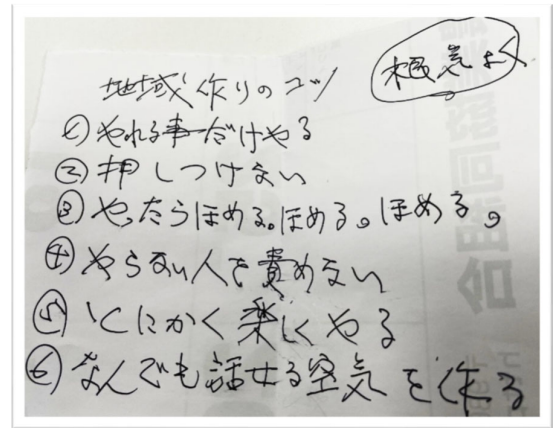 地域作りのコツ
根気よく
①やれる事だけやる
②押しつけない
③やったらほめる。ほめる。ほめる。
④やらない人を責めない
⑤とにかく楽しくやる
⑥なんでも話せる空気を作る